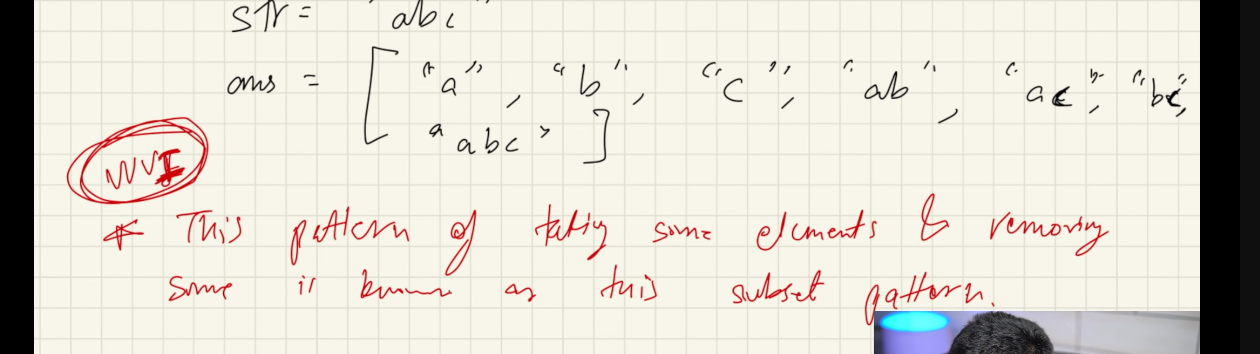 str = "abc"
ans = ["a", "b", "c", "ab", "ac", "bc",
"abc"]
VVVI
* This pattern of taking some elements & removing
some is known as this subset pattern.